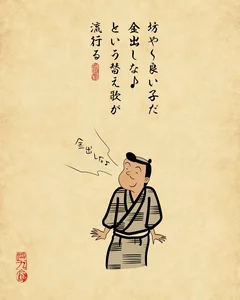 坊や〜良い子だ
金出しな♪
という替え歌が
流行る
金出しな♪